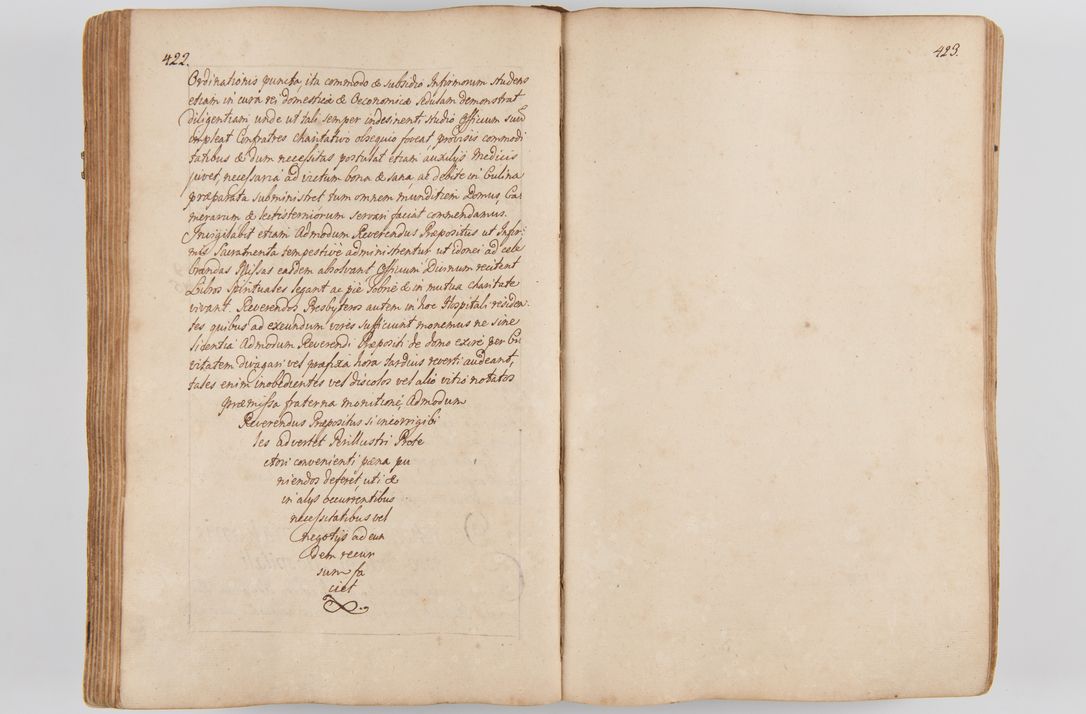 422.
Ordinationis puncta, ita commodo & subsidio Infirmorum studens
etiam in cura rei domesticæ & Oeconomicæ sedulam demonstrat
diligentiam unde ut tali semper indesinenti studio Officium suũ
impleat Confratres charitativo obsequio foveat provisis commodi
tatibus & dum necessitas postulat etiam auxilijs Medicis
juvet, necessaria ad victum bona & sana ac debite in Culina
præparata subministret tum omnem munditiem Domus, Ca
merarum & lectisterniorum servari faciat commendamus.
Invigilabit etiam Admodum Reverendus Præpositus ut Infir
mis Sacramenta tempestivè administrentur ut idonei ad cele
brandas Missas easdem absolvant Officium Diurnum recitent
Libros spirituales legant ac piè sobriè & in mutua charitate
vivant. Reverendos Presbyteros autem in hoc Hospitali residen
tes quibus ad exeundum vires sufficiunt monemus ne sine
licentia Admodum Reverendi Præpositi de domo exire per Ci
vitatem divagari vel præfixa hora tardius reverti audeant,
tales enim inobedientes vel discolos vel alio vitio notatos
præmissa fraterna monitione, Admodum
Reverendus Præpositus si incorrigibi
les advertet Perillustri Prote
ctori convenienti pæna pu
niendos deferet, uti &
in alijs occurrentibus
necessitatibus vel
negotijs ad eun
dem recur
sum fa
ciet
423.